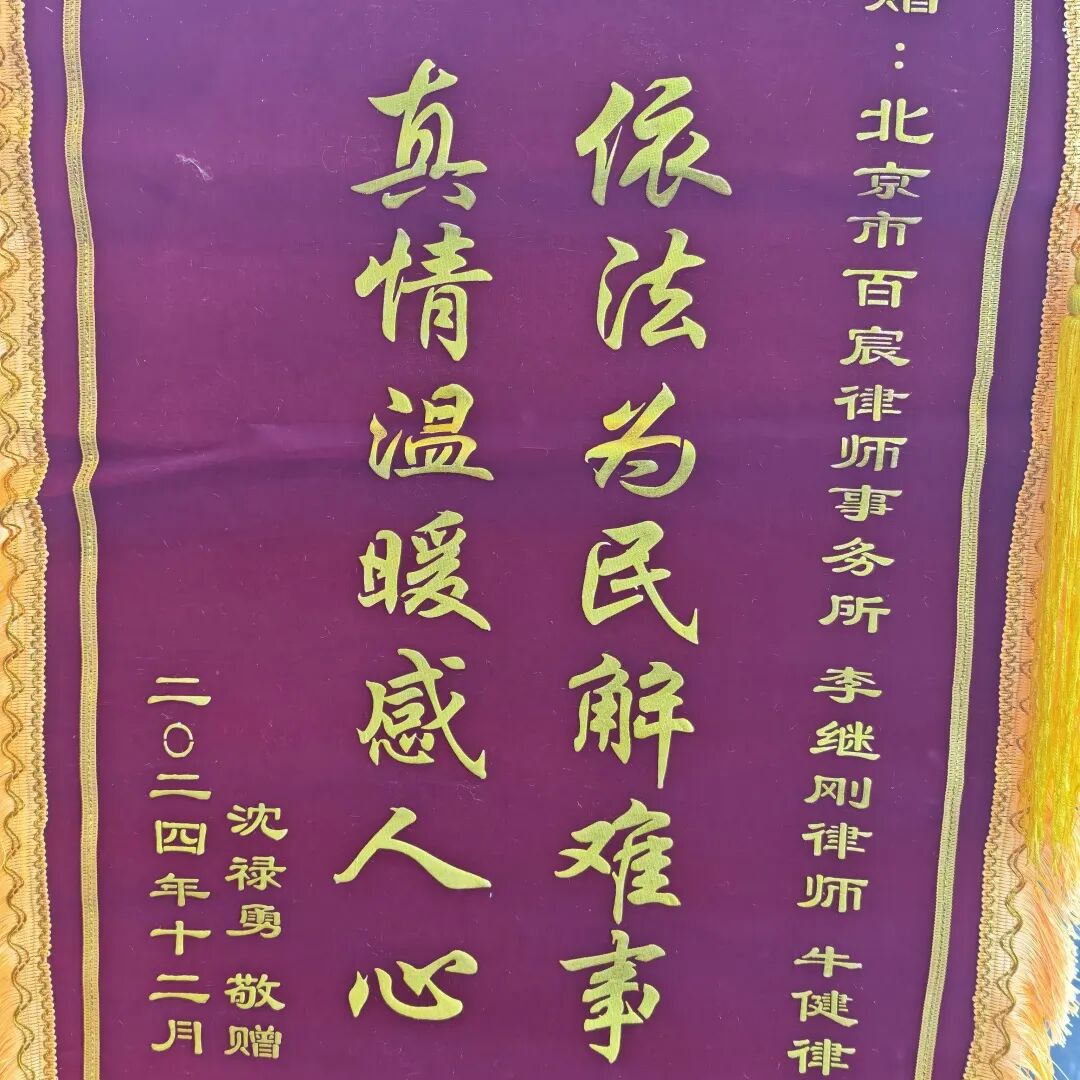 赠：北京市百宸律师事务所 李继刚律师 牛健律
依法为民解难事
真情温暖感人心
沈禄勇 敬赠
二〇二四年十二月